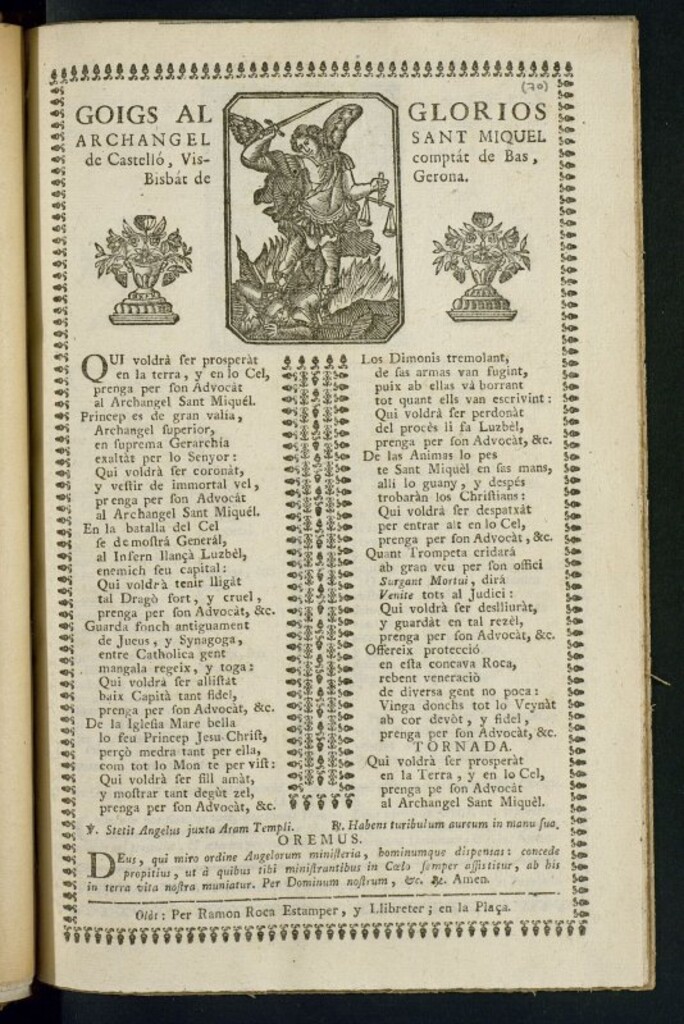 (70)
GOIGS AL GLORIOS
ARCHANGEL SANT MIQUEL
de Castelló, Vis- comptát de Bas,
Bisbát de Gerona.
QUI voldrà ſer proſperàt
en la terra, y en lo Cel,
prenga per ſon Advocàt
al Archangel Sant Miquél.
Princep es de gran valía,
Archangel ſuperior,
en ſuprema Gerarchía
exaltàt per lo Senyor:
Qui voldrà ſer coronàt,
y veſtir de immortal vel,
prenga per ſon Advocàt
al Archangel Sant Miquél.
En la batalla del Cel
ſe demoſtrá Generál,
al Infern llançà Luzbèl,
enemich ſeu capital:
Qui voldrà tenir lligàt
tal Dragò fort, y cruel,
prenga per ſon Advocàt, &c.
Guarda fonch antiguament
de Jueus, y Synagoga,
entre Catholica gent
mangala regeix, y toga:
Qui voldrà ſer alliſtàt
baix Capità tant fidel,
prenga per ſon Advocàt, &c.
De la Igleſia Mare bella
lo feu Princep Jesu-Chriſt,
perçò medra tant per ella,
com tot lo Mon te per viſt:
Qui voldrà ſer fill amàt,
y moſtrar tant degùt zel,
prenga per ſon Advocàt, &c.
Los Dimonis tremolant,
de ſas armas van fugint,
puix ab ellas và borrant
tot quant ells van eſcrivint:
Qui voldrá ſer perdonàt
del procès li fa Luzbèl,
prenga per ſon Advocàt, &c.
De las Animas lo pes
te Sant Miquèl en ſas mans,
allì lo guany, y deſpés
trobaràn los Chriſtians:
Qui voldrá ſer deſpatxàt
per entrar alt en lo Cel,
prenga per ſon Advocàt, &c.
Quant Trompeta cridará
ab gran veu per ſon offici
Surgant Mortui, dirá
Venite tots al Judici:
Qui voldrà ſer deslliuràt,
y guardàt en tal rezèl,
prenga per ſon Advocàt, &c.
Offereix protecció
en eſta concava Roca,
rebent veneraciò
de diverſa gent no poca:
Vinga donchs tot lo Veynàt
ab cor devòt, y fidel,
prenga per ſon Advocàt, &c.
TORNADA.
Qui voldrà ſer proſperàt
en la Terra, y en lo Cel,
prenga pe ſon Advocàt
al Archangel Sant Miquèl.
℣. Stetit Angelus juxta Aram Templi. ℟. Habens turibulum aureum in manu ſua.
OREMUS.
DEus, qui miro ordine Angelorum miniſteria, hominumque diſpensas: concede
propitius, ut à quibus tibi miniſtrantibus in Cœlo ſemper aſſiſtitur, ab his
in terra vita noſtra muniatur. Per Dominum noſtrum, &c. ℟. Amen.
Olòt: Per Ramon Roca Eſtamper, y Llibreter; en la Plaça.